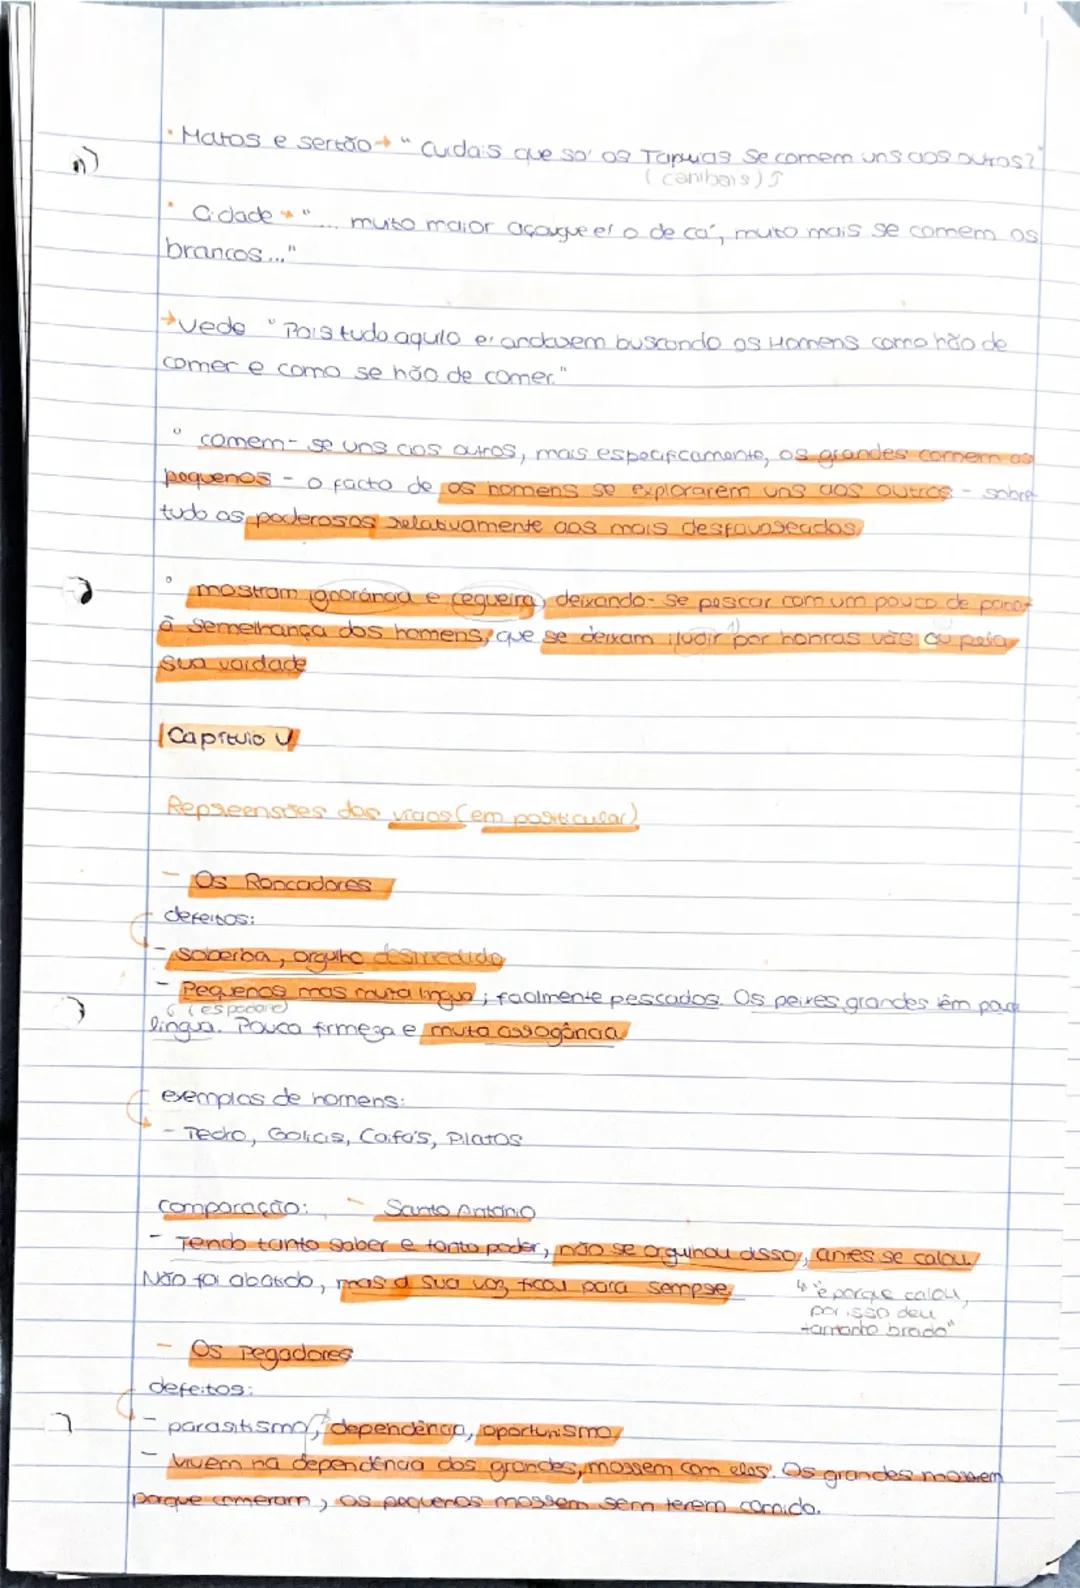 • Matos e sertão → "Cuidais que so' os Tapuias se comem uns aos outros?"
(canibais)
• Cidade → "... muito maior açougue e' o de ca', muito mais se comem os
brancos..."
→ Vede "Pois tudo aquilo e' andarem buscando os Homens como hão de
comer e como se hão de comer."
° comem-se uns aos outros, mais especificamente, os grandes comem os
pequenos - o facto de os homens se explorarem uns aos outros - sobre
tudo os poderosos relativamente aos mais desfavorecidos
° mostram ignorância e cegueira, deixando-se pescar com um pouco de pano
à semelhança dos homens, que se deixam iludir por honras vãs ou pela
sua vaidade
Capítulo V
Repreensões dos vícios (em particular)
- Os Roncadores
defeitos:
- soberba, orgulho desmedido
- Pequenos mas muita língua; facilmente pescados. Os peixes grandes têm pouca
(espadarte)
língua. Pouca firmeza e muita arrogância
exemplos de homens:
- Pedro, Golias, Caifás, Pilatos
comparação: - Santo António
- Tendo tanto saber e tanto poder, não se orgulhou disso, antes se calou.
Não foi abatido, mas a sua voz ficou para sempre.
↳ "e porque calou,
por isso deu
tamanho brado"
- Os Pegadores
defeitos:
- parasitismo, dependência, oportunismo,
- vivem na dependência dos grandes, morrem com eles. Os grandes morrem
porque comeram, os pequenos morrem sem terem comido.